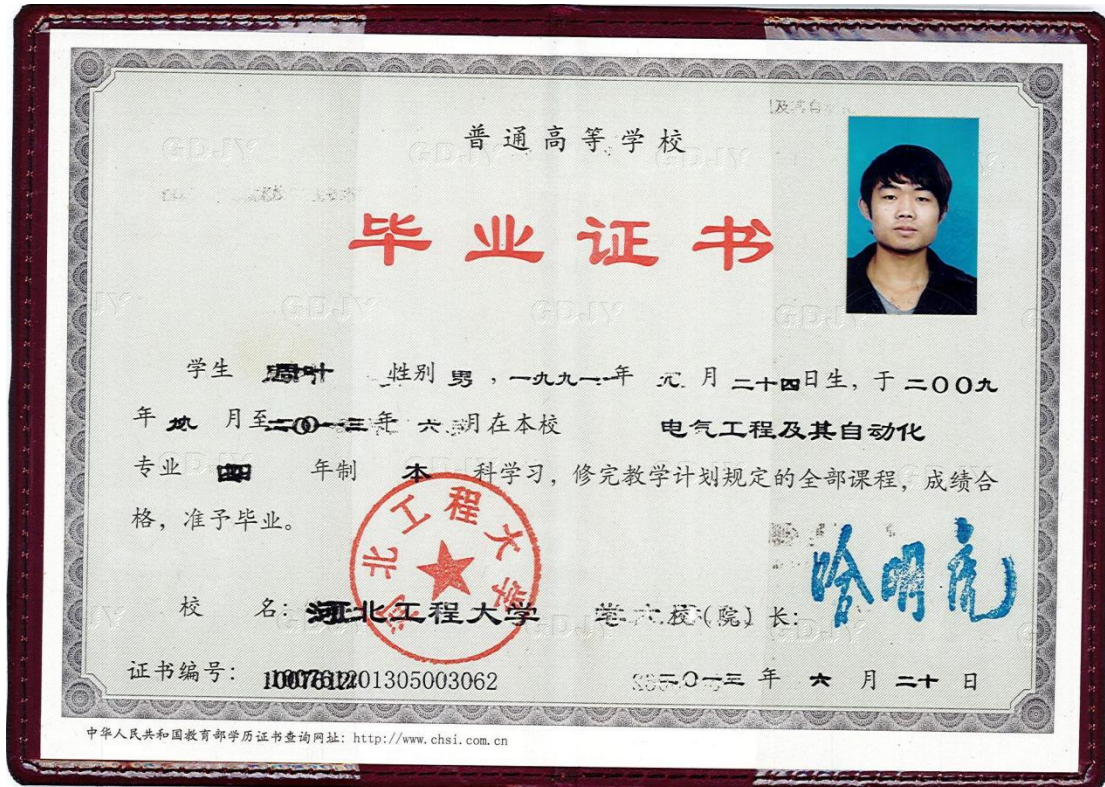 普通高等学校
毕业证书
学生 周叶 性别 男，一九九一年 元 月 二十四日生，于 二〇〇九
年 九 月至二〇一三年 六 月在本校 电气工程及其自动化
专业 四 年制 本 科学习，修完教学计划规定的全部课程，成绩合
格，准予毕业。
河北工程大学
校 名：河北工程大学 校（院）长：哈明虎
证书编号：201305003062 二〇一三 年 六 月 二十 日
中华人民共和国教育部学历证书查询网址：http://www.chsi.com.cn
GDJY